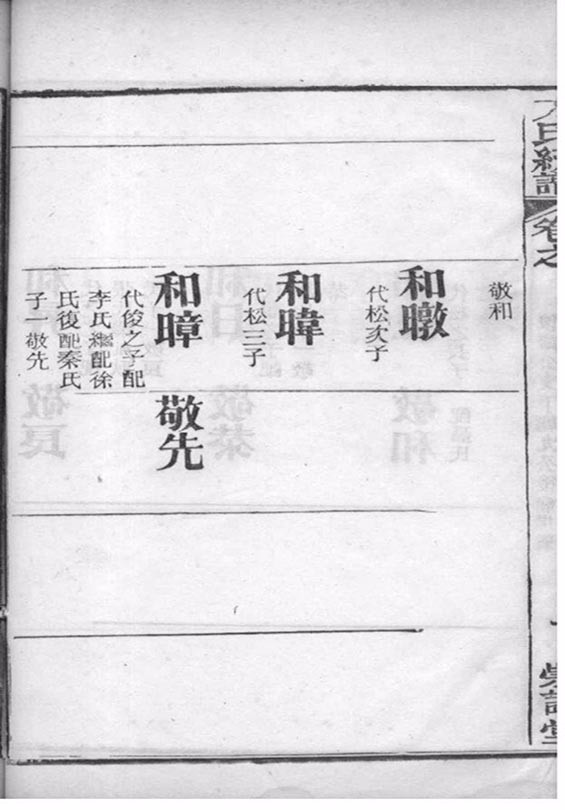 氏續譜
卷之
敬和
和暾
代松次子
和暐
代松三子
和暲
代俊之子配
李氏繼配徐
氏復配秦氏
子一敬先
敬先